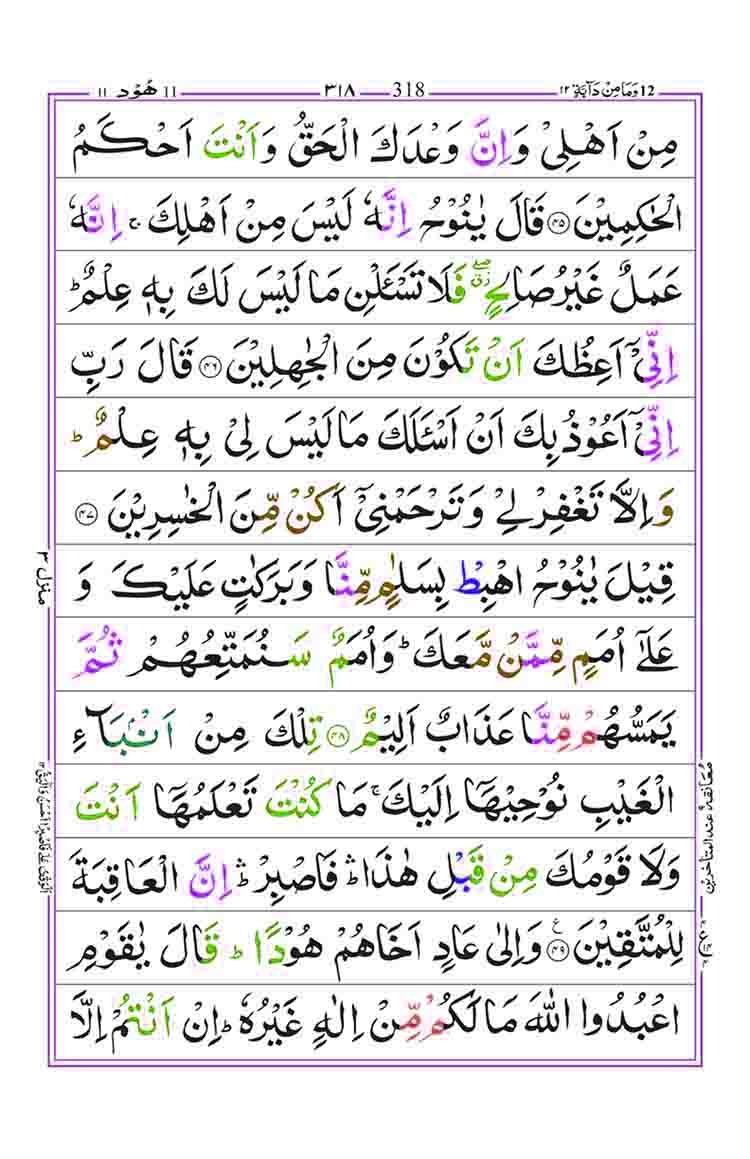 12 وَمَا مِنْ دَآبَّةٍ ١٢ 318 ٣١٨ 11 هُوْد ١١
مِنْ اَهْلِیْ وَاِنَّ وَعْدَكَ الْحَقُّ وَاَنْتَ اَحْكَمُ
الْحٰكِمِیْنَ ﴿۴۵﴾ قَالَ یٰنُوْحُ اِنَّهٗ لَیْسَ مِنْ اَهْلِكَ ۚ اِنَّهٗ
عَمَلٌ غَیْرُ صَالِحٍ ۖ٘ فَلَا تَسْـَٔلْنِ مَا لَیْسَ لَكَ بِهٖ عِلْمٌ ؕ
اِنِّیْۤ اَعِظُكَ اَنْ تَكُوْنَ مِنَ الْجٰهِلِیْنَ ﴿۴۶﴾ قَالَ رَبِّ
اِنِّیْۤ اَعُوْذُ بِكَ اَنْ اَسْـَٔلَكَ مَا لَیْسَ لِیْ بِهٖ عِلْمٌ ؕ
وَاِلَّا تَغْفِرْ لِیْ وَتَرْحَمْنِیْۤ اَكُنْ مِّنَ الْخٰسِرِیْنَ ﴿۴۷﴾
قِیْلَ یٰنُوْحُ اهْبِطْ بِسَلٰمٍ مِّنَّا وَبَرَكٰتٍ عَلَیْكَ وَ
عَلٰۤی اُمَمٍ مِّمَّنْ مَّعَكَ ؕ وَاُمَمٌ سَنُمَتِّعُهُمْ ثُمَّ
یَمَسُّهُمْ مِّنَّا عَذَابٌ اَلِیْمٌ ﴿۴۸﴾ تِلْكَ مِنْ اَنْۢبَآءِ
الْغَیْبِ نُوْحِیْهَاۤ اِلَیْكَ ۚ مَا كُنْتَ تَعْلَمُهَاۤ اَنْتَ
وَلَا قَوْمُكَ مِنْ قَبْلِ هٰذَا ۛؕ فَاصْبِرْ ۛؕ اِنَّ الْعَاقِبَةَ
لِلْمُتَّقِیْنَ ﴿۴۹﴾ وَاِلٰی عَادٍ اَخَاهُمْ هُوْدًا ؕ قَالَ یٰقَوْمِ
اعْبُدُوا اللّٰهَ مَا لَكُمْ مِّنْ اِلٰهٍ غَیْرُهٗ ؕ اِنْ اَنْتُمْ اِلَّا
منزل ٣
معانقة عند المتاخرين